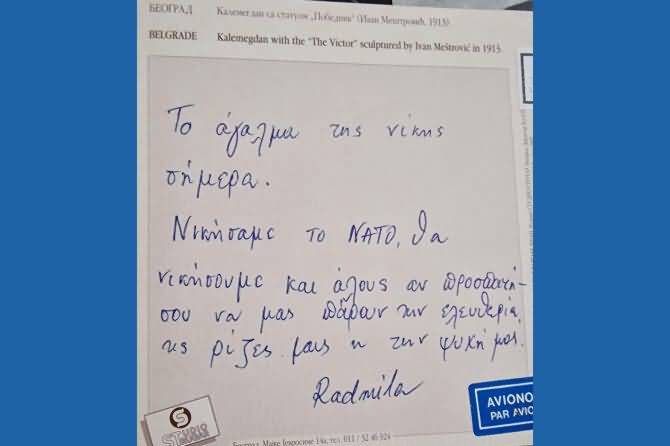 БЕОГРАД Калемегдан са статуом „Победник“ (Иван Мештровић, 1913)
BELGRADE Kalemegdan with the "The Victor" sculptured by Ivan Meštrović in 1913
Το άγαλμα της νίκης
σήμερα.
Νικήσαμε το ΝΑΤΟ, θα
νικήσουμε και άλους αν προσπαθή-
σου να μας πάρουν την ελευθερία,
τις ρίζες μας κ την ψυχή μας.
Radmila
S
STUDIO
AVIONO
PAR AVIO
Београд, Мајке Јевросиме 14a, тел. 011 /